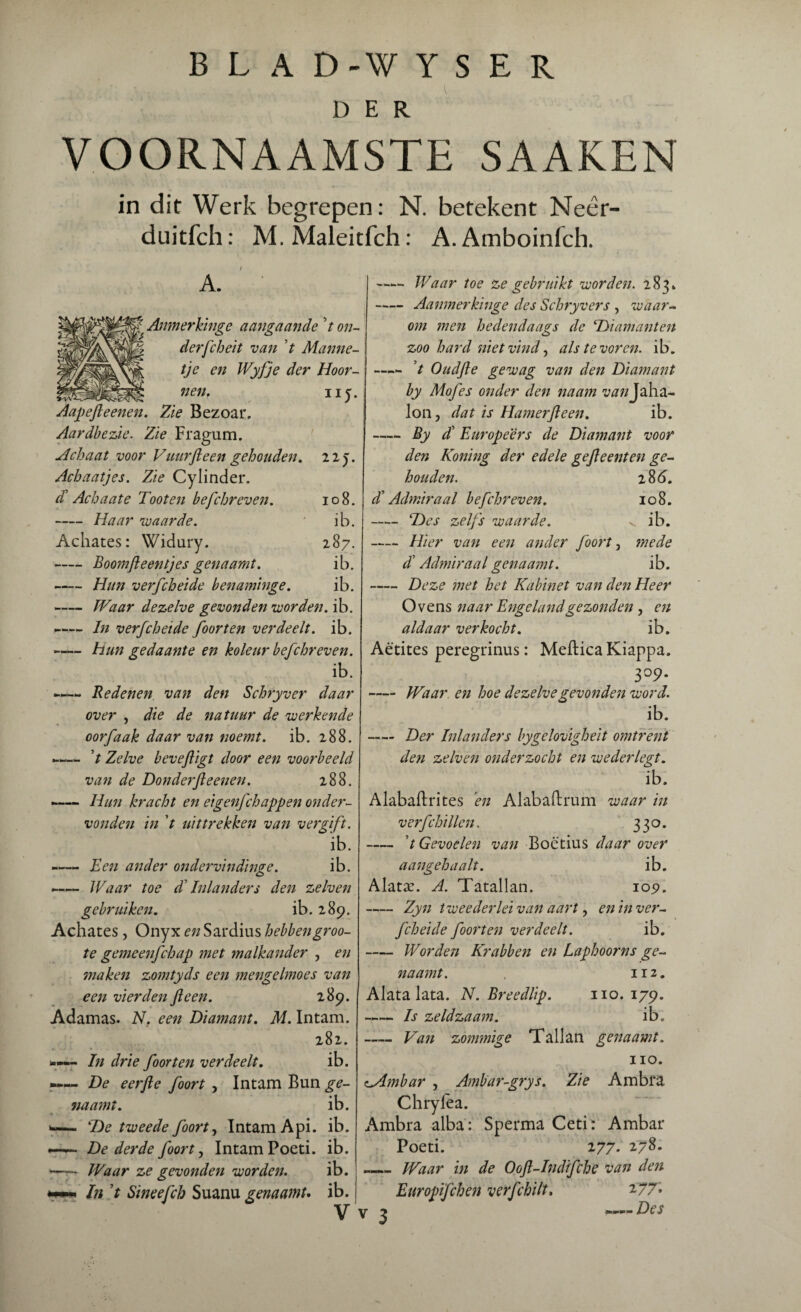 BLAD-WYSER
DER
VOORNAAMSTE SAAKEN
in dit Werk begrepen: N. betekent Neêr-
duitsch: M. Maleitsch: A. Amboinsch.
A.
Anmerkinge aangaande 't on-
derscheit van 't Manne-
tje en Wyfje der Hoor-
nen. 115.
Aapesteenen. Zie Bezoar.
Aardbezie. Zie Fragum.
Achaat voor Vuursteen gehouden. 225.
Achaatjes. Zie Cylinder.
d' Achaate Tooten beschreven. 108.
—— Haar waarde. ib.
Achates: Widury. 287.
—— Boomsteentjes genaamt. ib.
—— Hun verscheide benaminge. ib.
—— Waar dezelve gevonden worden. ib.
—— In verscheide soorten verdeelt. ib.
—— Hun gedaante en koleur beschreven.
ib.
—— Redenen van den Schryver daar
over , die de natuur de werkende
oorsaak daar van noemt. ib. 288.
—— 't Zelve bevestigt door een voorbeeld
van de Dondersteenen. 288.
—— Hun kracht en eigenschappen onder-
vonden in 't uittrekken van vergift.
ib.
—— Een ander ondervindinge. ib.
—— Waar toe d' Inlanders den zelven
gebruiken. ib. 289.
Achates, Onyx en Sardius hebben groo-
te gemeenschap met malkander , en
maken zomtyds een mengelmoes van
een vierden steen. 289.
Adamas. N. een Diamant. M. Intam.
282.
—— In drie soorten verdeelt. ib.
—— De eerste soort , Intam Bun ge-
naamt. ib.
—— De tweede soort, Intam Api. ib.
—— De derde soort, Intam Poeti. ib.
—— Waar ze gevonden worden. ib.
—— In 't Sineesch Suanu genaamt. ib.
—— Waar toe ze gebruikt worden. 283.
—— Aanmerkinge des Schryvers , waar-
om men hedendaags de Diamanten
zoo hard niet vind, als te voren. ib.
—— 't Oudste gewag van den Diamant
by Moses onder den naam van Jaha-
lon, dat is Hamersteen. ib.
—— By d' Europeërs de Diamant voor
den Koning der edele gesteenten ge-
houden. 286.
d' Admiraal beschreven. 108.
—— Des zelfs waarde. ib.
—— Hier van een ander soort, mede
d' Admiraal genaamt. ib.
—— Deze met het Kabinet van den Heer
Ovens naar Engeland gezonden , en
aldaar verkocht. ib.
Aëtites peregrinus: Mestica Kiappa.
309.
—— Waar en hoe dezelve gevonden word.
ib.
—— Der Inlanders bygelovigheit omtrent
den zelven onderzocht en wederlegt.
ib.
Alabastrites en Alabastrum waar in
verschillen. 330.
—— 't Gevoelen van Boëtius daar over
aangehaalt. ib.
Alatæ. A. Tatallan. 109.
—— Zyn tweederlei van aart, en in ver-
scheide soorten verdeelt. ib.
—— Worden Krabben en Laphoorns ge-
naamt. 112.
Alata lata. N. Breedlip. 110. 179.
—— Is zeldzaam. ib.
—— Van zommige Tallan genaamt.
110.
Ambar , Ambar-grys. Zie Ambra
Chrysea.
Ambra alba: Sperma Ceti: Ambar
Poeti. 277. 278.
—— Waar in de Oost-Indische van den
Europischen verschilt. 277.
V v 3
—— Des